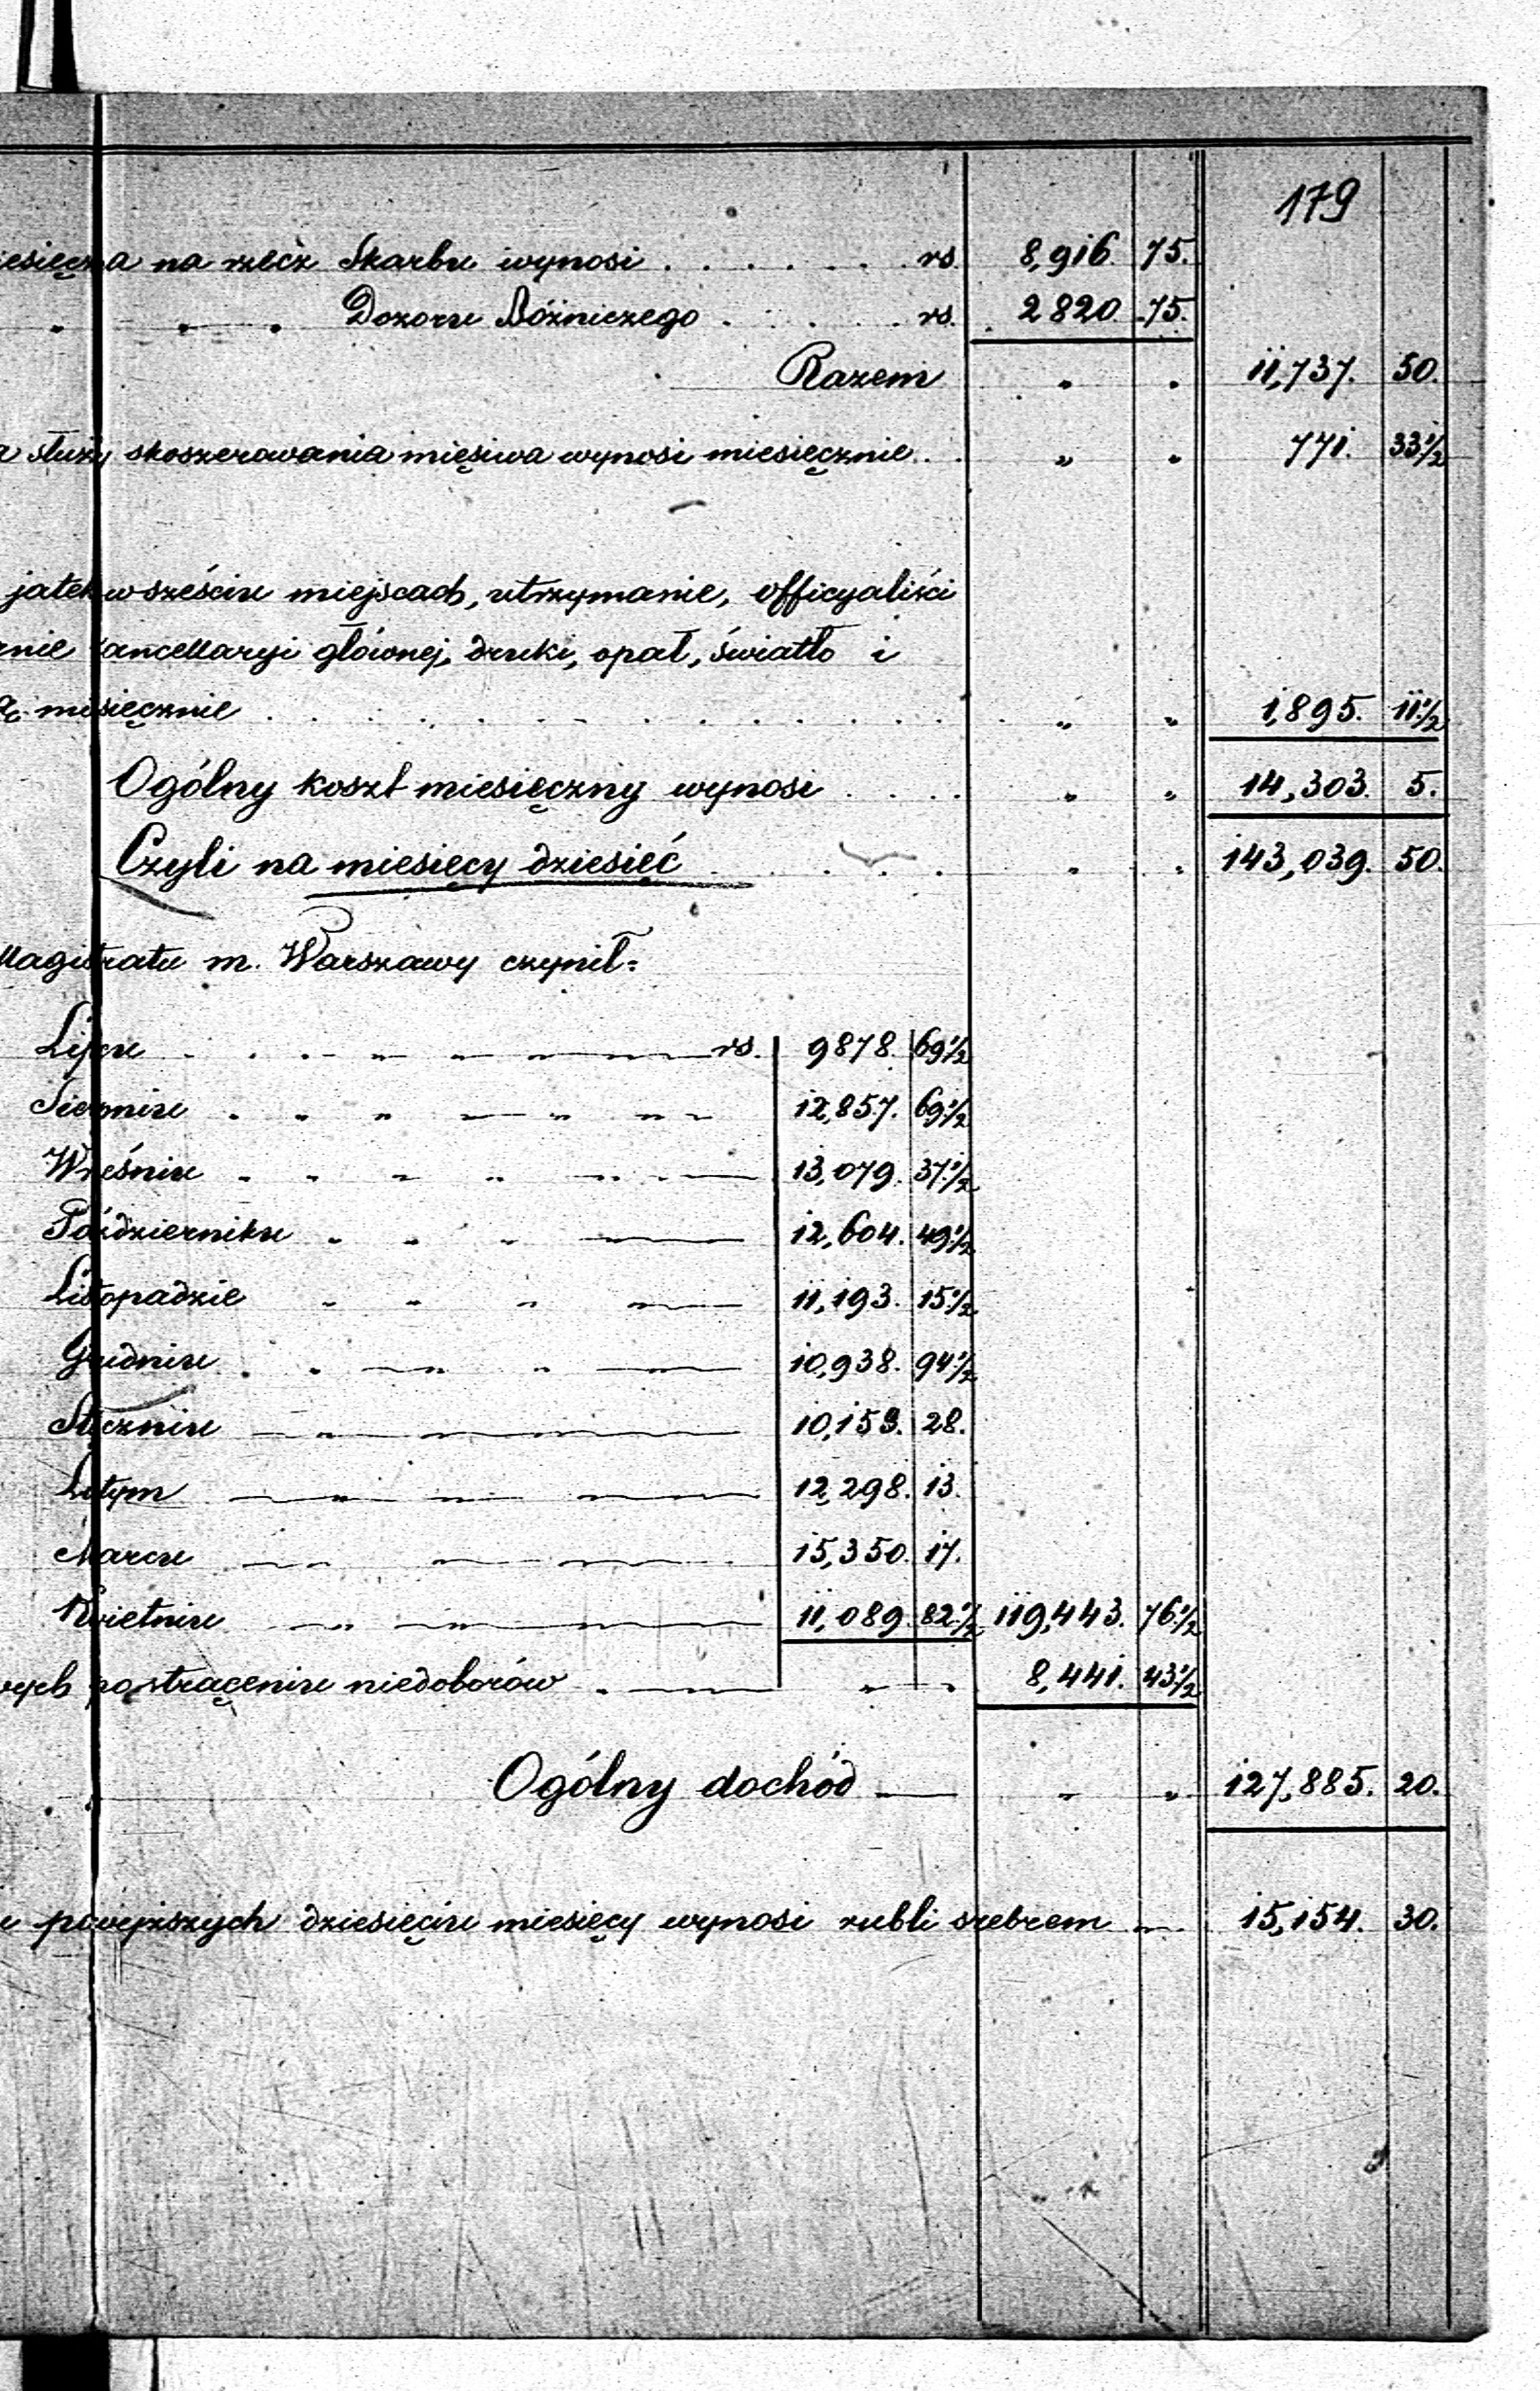 179
na rzecz Skarbu wynosi . . . . . . rs. 8,916. 75.
" " " Dozoru Bóżniczego . . . . . rs. 2820. 75.
Razem " " 11,737. 50.
służy skoszerowania mięsiwa wynosi miesięcznie . . " " 771. 33 1/2
jatek w sześciu miejscach, utrzymanie, officyaliści
kancellaryi głównej, druki, opał, światło i
miesięcznie . . . . . . . . . . " " 1,895. 11 1/2
Ogólny koszt miesięczny wynosi . . . . " " 14,303. 5.
Czyli na miesięcy dziesięć . . . . " " 143,039. 50.
Magistratu m. Warszawy czynił:
Lipcu . . . " " " rs. 9878. 69 1/2
Sierpniu . . " " " " 12,857. 69 1/2
Wrześniu . . " " " 13,079. 37 1/2
Październiku " " " 12,604. 49 1/2
Listopadzie " " " " 11,193. 15 1/2
Grudniu . . " " 10,938. 94 1/2
Styczniu " " 10,159. 28.
Lutym " " 12,298. 13.
Marcu " " 15,350. 17.
Kwietniu " " 11,089. 82 1/2 119,443. 76 1/2
po strąceniu niedoborów . " " 8,441. 43 1/2
Ogólny dochód " " 127,885. 20.
powyższych dziesięciu miesięcy wynosi rubli srebrem 15,154. 30.